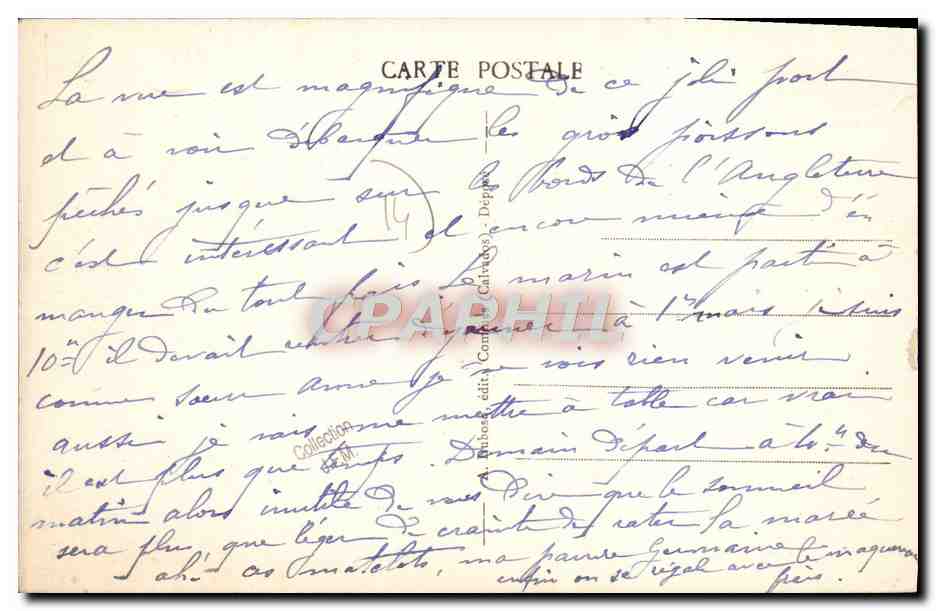 CARTE POSTALE
La vue est magnifique de ce joli port
et à voir débarquer les gros poissons
pêchés jusque sur les bords de l'Angleterre
c'est intéressant et encore mieux d'en
manger du tout frais Le marin est parti à
10h il devait rentrer dejeuner à 1h mais je suis
comme soeur anne je ne vois rien venir
aussi je vais me mettre à table car vrai
il est plus que temps. Demain Départ à 4h du
matin alors inutile de vous dire que le sommeil
sera plus que léger de crainte de rater la marée
ah ces matelots, ma pauvre Germaine
enfin on se régale avec le maquereau
frais.
14
Collection
M.
A. Dubosq, édit., (Calvados) - Déposé
CPAPHIL